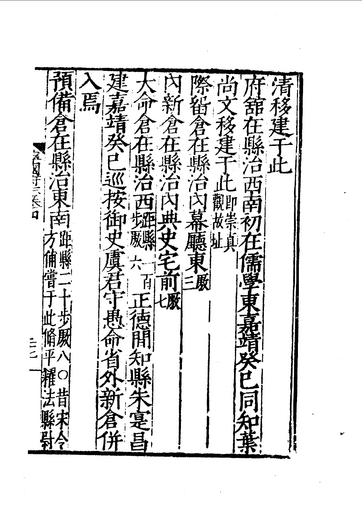 清移建于此
府舘在縣治西南初在儒學東嘉靖癸巳同知葉
尚文移建于此即崇真觀故址
際留倉在縣治內幕廳東厫三
內新倉在縣治內典史宅前厫七
大命倉在縣治西距縣一百步厫六正德間知縣朱寔昌
建嘉靖癸巳巡按御史虞君守愚命省外新倉併
入焉
預備倉在縣治東南距縣二十步厫八〇昔宋令方備嘗于此脩平糴法縣尉